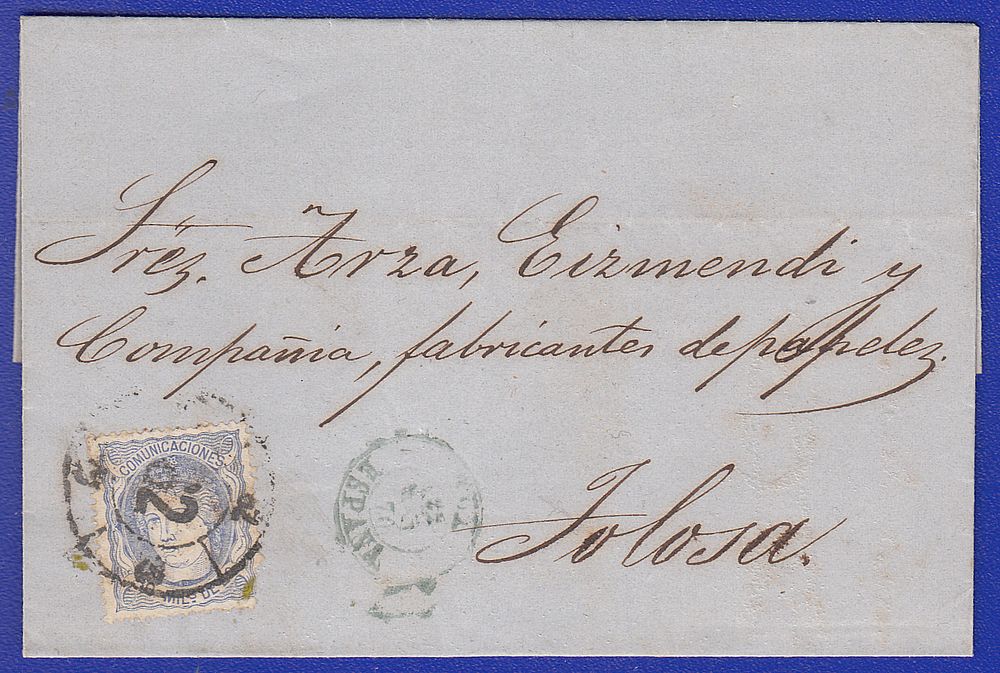 Sres. Arza, Eizmendi y
Compañia, fabricantes de papeles.
Tolosa.
COMUNICACIONES
2
MILS DE